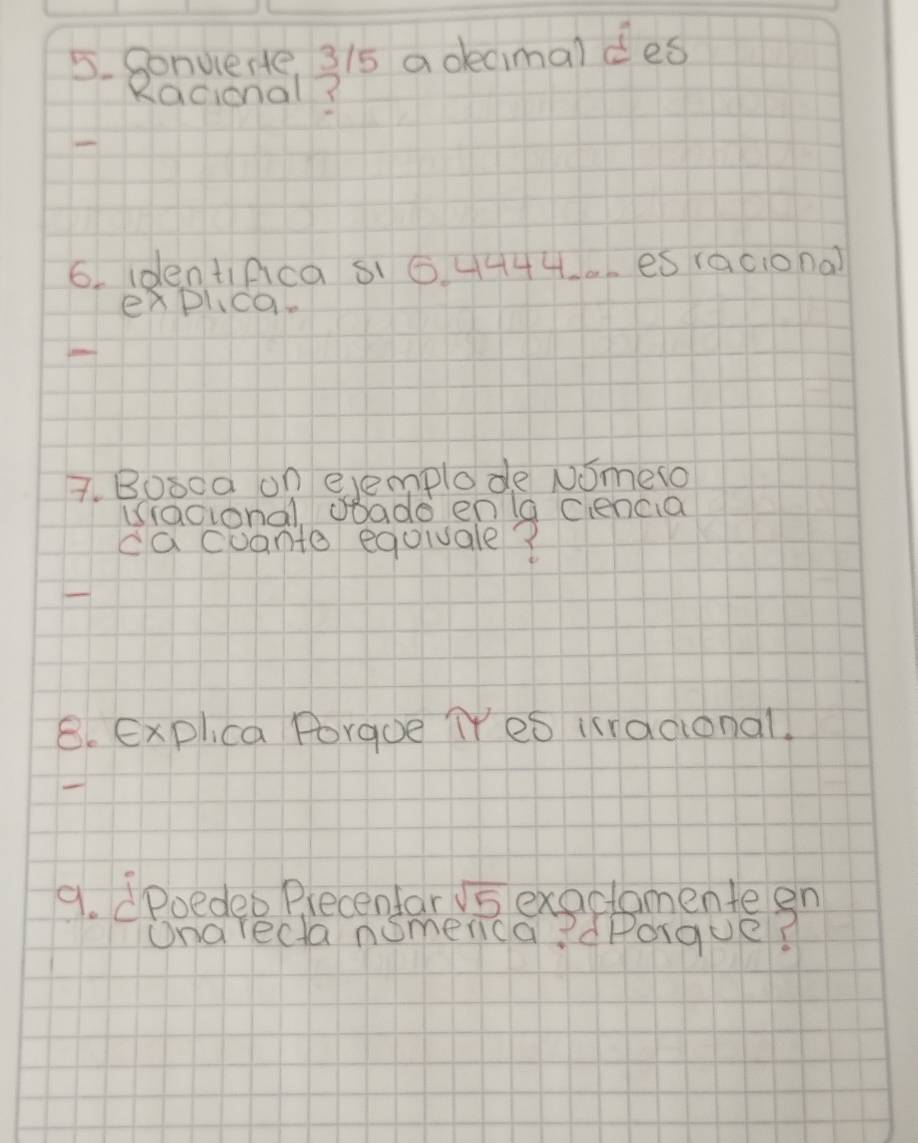 5. Convierte 3/5 a decimal ¿es
Racional?
-
6. identifica si 5.4444... es racional
explica.
-
7. Busca un ejemplo de Número
irracional usado en la ciencia
¿a cuanto equivale?
-
8. Explica Porque π es irracional.
-
9. ¿Puedes Precentar √5 exactamente en
Una recta númerica? ¿Porque?